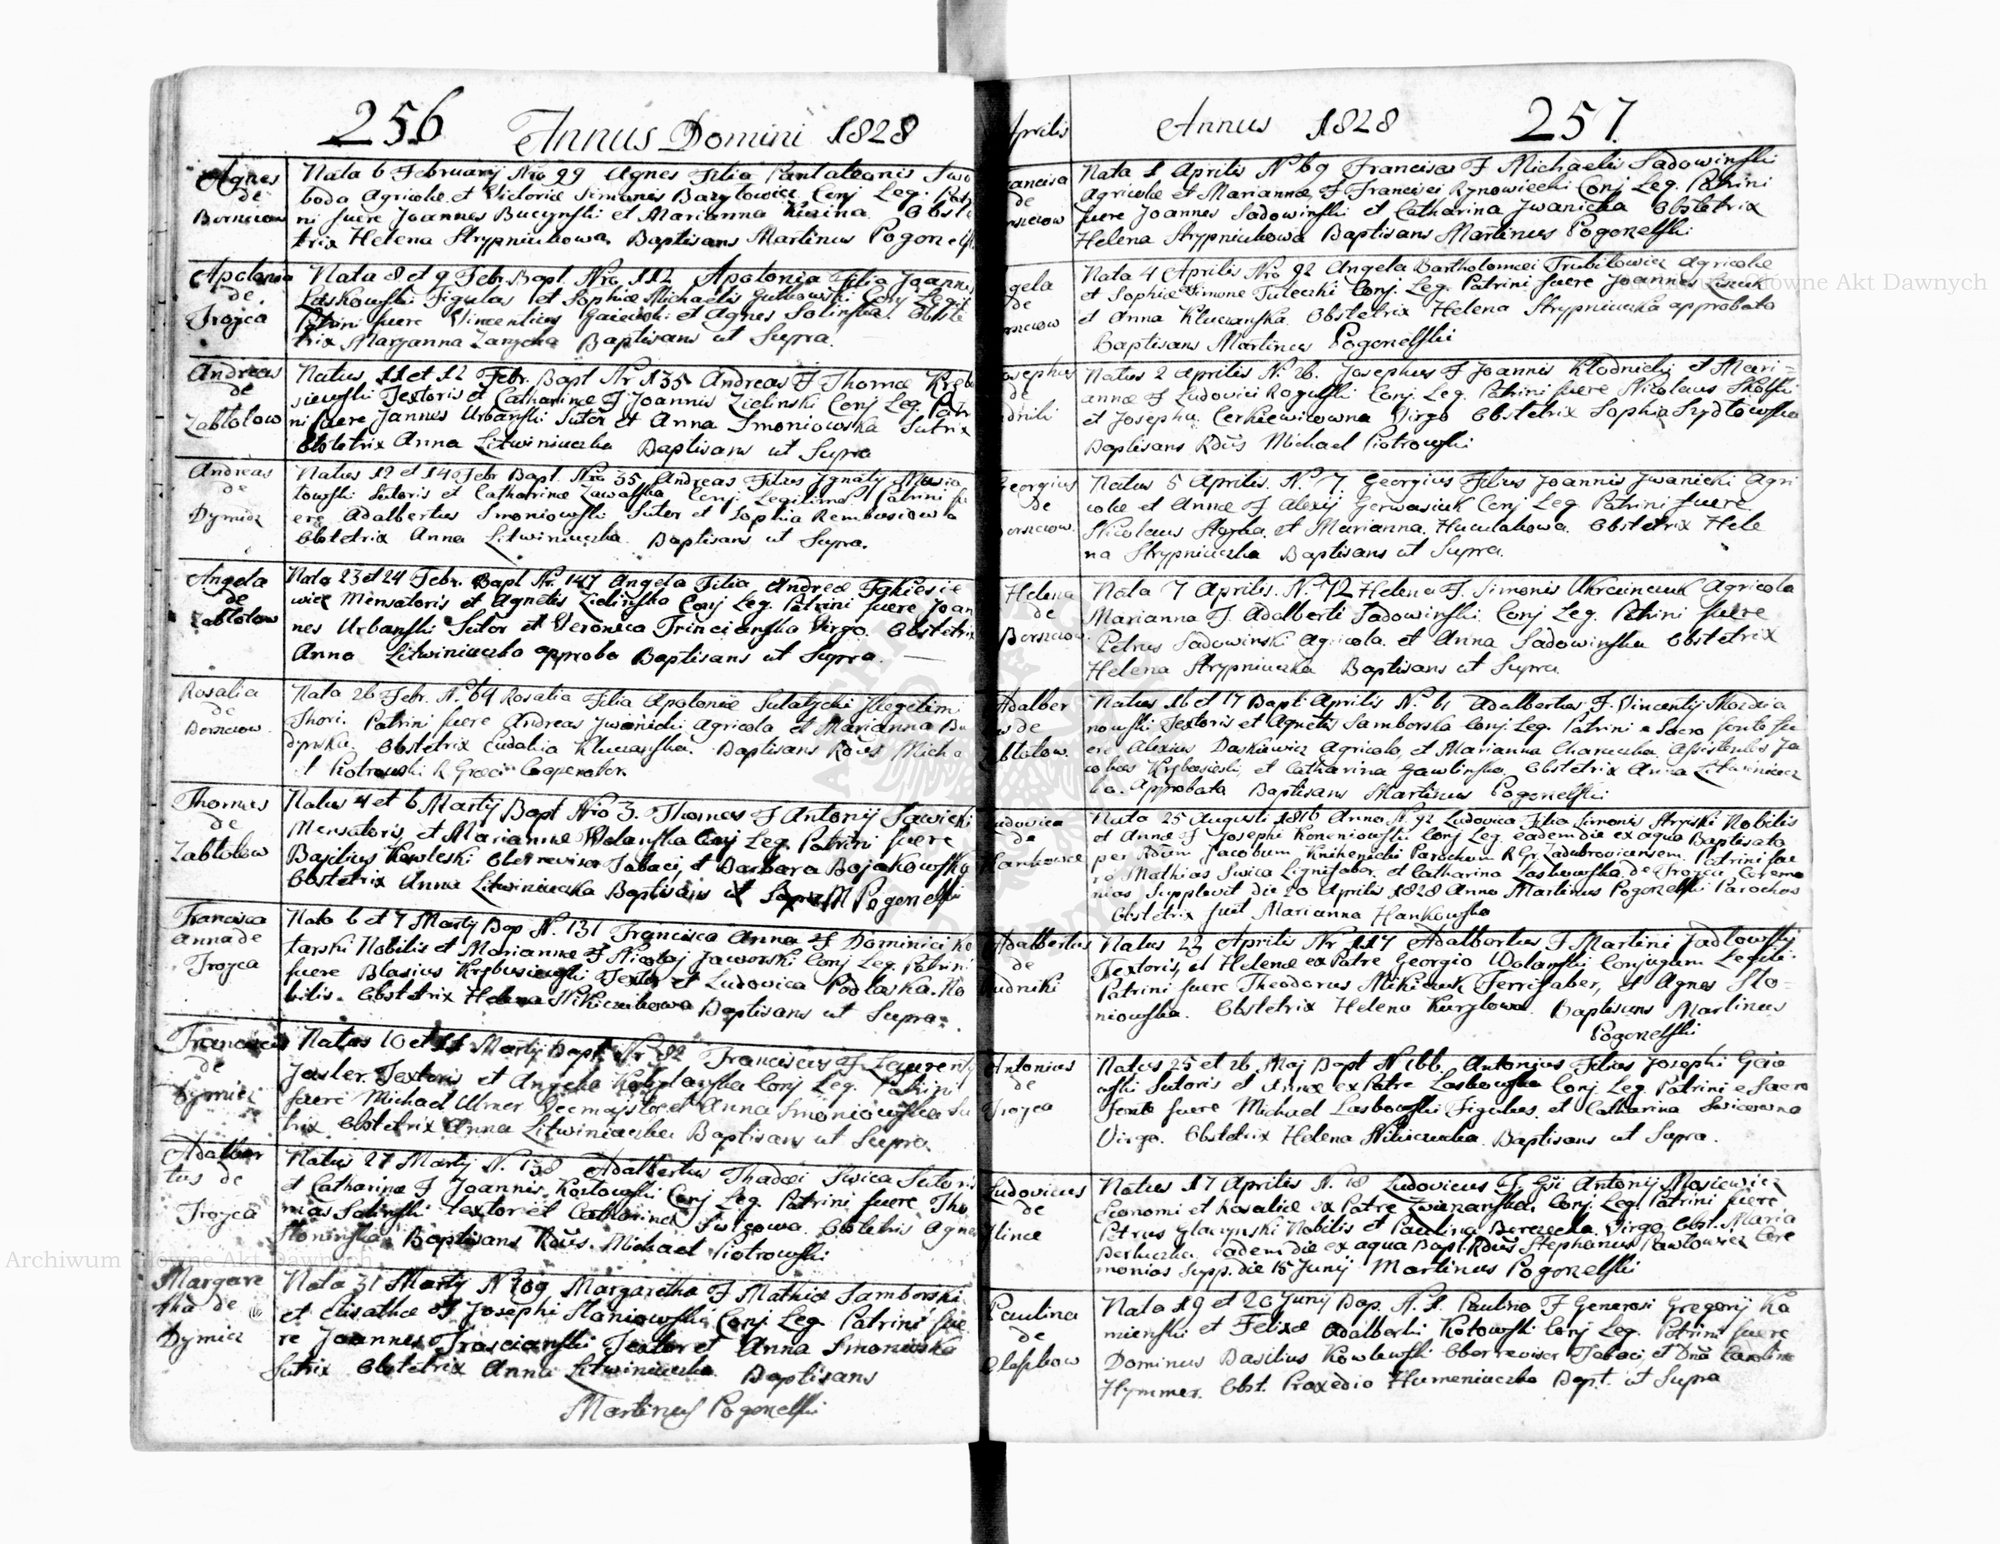 256 Annus Domini 1828
Agnes
de
Borszczow
Nata 6 February Nro 99 Agnes Filia Pantaleonis Swo
boda Agricolæ et Victoriæ Simonis Bazylowicz Conj Leg. Patri
ni fuere Joannes Buczynski et Marianna Obste
trix Helena Strypniukowa Baptisans Martinus Pogonelski
Apolonia
de
Trojca
Nata 8 et 9 Febr. Bapt. Nro 112 Apolonia Filia Joannis
Laskowski Figulas et Sophiæ Michaelis Gutkowski Conj Legit
Patrini fuere Vincentius Gaiewski et Agnes Solinska Obste
trix Maryanna Baptisans ut Supra.
Andreas
de
Zablotow
Natus 11 et 12 Febr. Bapt Nr 135 Andreas F Thomæ Krębu
siewski Textoris et Catharinæ F Joannis Zielinski Conj Leg. Patri
ni fuere Jannes Urbanski Sutor et Anna Smoniowska Sutrix
Obstetrix Anna Litwiniuczka Baptisans ut Supra
Andreas
de
Dymicz
Natus 12 et 14 Febr Bapt. Nro 35 Andreas Filius Ignatij
towski Sutoris et Catharinæ Zawalska Conj. Legitima Patrini fu
ere Adalbertus Smoniowski Sutor et Sophia Rembosiowska
Obstetrix Anna Litwiniuczka. Baptisans ut Supra.
Angela
de
Zablotow
Nata 23 et 24 Febr. Bapt Nr. 147 Angela Filia Andreæ
wicz Mensatoris et Agnetis Zielinska Conj Leg. Patrini fuere Joan
nes Urbanski Sutor et Veronica Trinciarska Virgo. Obstetrix
Anna Litwiniuczka approba Baptisans ut Supra.
Rosalia
de
Borszczow
Nata 26 Febr. N. 69 Rosalia Filia Apoloniæ Sulatycki Illegitimi
Thori. Patrini fuere Andreas Jwanicki Agricola et Marianna Bu
Obstetrix Eudokia Kluczanska. Baptisans Rdus Micha
l Piotrowski R. Græci Cooperator.
Thomas
de
Zablotow
Natus 4 et 6 Marty Bapt Nro 3. Thomas F Antonij Sawicki
Mensatoris, et Mariannæ Wolanska Conj Leg. Patrini fuere
Basilius Kowleski Oberrevisor Tabaci, et Barbara Bojakowska
Obstetrix Anna Litwiniuczka Baptisans ut Supra M Pogonelski
Francisca
Anna de
Trojca
Nata 6 et 7 Marty Bap N. 131 Francisca Anna F Dominici Ko
tarski Nobilis et Mariannæ F Nicolaj Jaworski Conj Leg. Patrini
fuere Blasius Krębusiewski Textor et Ludovica Podlaska. No
bilis. Obstetrix Helena Nikiczukowa Baptisans ut Supra.
Franciscus
de
Dymicz
Natus 10 et 11 Marty Bapt. Nr 82 Franciscus F Laurenty
Josler. Textoris et Angela Conj Leg. Patrini
fuere Michael Ulmer et Anna Smoniowska Su
trix Obstetrix Anna Litwiniuczka Baptisans ut Supra.
Adalber
tus de
Trojca
Natus 27 Marty N. 138 Adalbertus Thadæi Swica Sutoris
et Catharinæ F Joannis Kostowski Conj Leg. Patrini fuere Tho
mas Solinski textor et Catharina Swięzowa Obstetrix Agnes
Stoninska Baptisans Rdus. Michael Piotrowski
Margare
tha de
Dymicz
Nata 31 Marty N 109 Margaretha F Mathiæ Samborski
et Elisathæ F Josephi Stoniowski Conj Leg. Patrini fue
re Joannes Trascianski Textor et Anna Smoniowska
Sutrix Obstetrix Anna Litwiniuczka Baptisans
Martinus Pogonelski
Aprilis Annus 1828 257
Francisca
de
Borszczow
Nata 1 Aprilis N 69 Francisca F Michaelis Sadowinski
Agricolæ et Mariannæ, F Francisci Rynowiecki Conj Leg. Patrini
fuere Joannes Sadowinski et Catharina Jwanicka Obstetrix
Helena Strypniukowa Baptisans Martinus Pogonelski
Angela
de
Borszczow
Nata 4 Aprilis Nro 92 Angela Bartholomei Trubilowicz Agricolæ
et Sophiæ Simone Tuleczki Conj. Leg. Patrini fuere Joannes
et Anna Kluczanska. Obstetrix Helena Strypniuczka approbata
Baptisans Martinus Pogonelski
Josephus
de
Rudniki
Natus 2 Aprilis N. 26. Josephus F Joannis Kłodnicki et Mari-
annæ F Ludovici Rogulski Conj. Leg. Patrini fuere Nicolaus
et Josepha Cerkiewiczowna Virgo Obstetrix Sophia Szydłowska
Baptisans Rdus Michael Piotrowski
Georgius
De
Borszczow
Natus 5 Aprilis. N. 7. Georgius Filius Joannis Jwanicki Agri
colæ et Annæ F Alexij Gerwasiuk Conj Leg Patrini fuere
Nicolaus et Marianna Huculakowa. Obstetrix Hele
na Strypniuczka Baptisans ut Supra.
Helena
de
Borszczow
Nata 7 Aprilis. N. 72 Helena F. Simonis Ukrainczuk Agricola
Marianna F. Adalberti Sadowinski. Conj Leg. Patrini fuere
Petrus Sadowinski Agricola et Anna Sadowinska Obstetrix
Helena Strypniuczka Baptisans ut Supra
Adalber
tus de
Zablotow
Natus 16 et 17 Bapt Aprilis N. 61 Adalbertus F. Vincentij
nowski Textoris et Agnetis Samborska Conj. Leg. Patrini e Sacro fonte fu
ere Alexius Daskiewicz Agricola, et Marianna Assistentes Ja
cobus Krębosieski, et Catharina Gawlinska. Obstetrix Anna Litwiniucz
ka. Approbata Baptisans Martinus Pogonelski
Ludovica
de
Hankowce
Nata 25 Augusti 1816 Anno N. 92 Ludovica Filia Simonis Nobilis
et Annæ F Josephi Koneniowski Conj Leg. eadem die ex aqua Baptisata
per Rdum Jacobum Knihenicki Parochum R Gr. Zadubrovicensem. Patrini fue
re Mathias Swica Lignifaber, et Catharina Laskowska de Trojca Ceremo
nias Supplevit die 20 Aprilis 1828 Anno Martinus Pogonelski Parochus
Obstetrix fuit Marianna Hankowska
Adalbertus
de
Rudniki
Natus 22 Aprilis Nr 117 Adalbertus F Martini Jadlowski
Textoris, et Helenæ ex Patre Georgio Wolanski Conjugum Legiti-
Patrini fuere Theodorus Mikiczuk Ferrifaber, et Agnes Sto-
niowska. Obstetrix Helena Kuryłowa. Baptisans Martinus
Pogonelski
Antonius
de
Trojca
Natus 25 et 26 Maj Bapt N 166. Antonius Filius Josephi Gaie
wski Sutoris et Annæ ex Patre Laskowska Conj Leg. Patrini e Sacro
fonte fuere Michael Laskowski Figulus, et Catharina
Virgo. Obstetrix Helena Nikiczuczka Baptisans ut Supra.
Ludovicus
de
Ilince
Natus 17 Aprilis N. 18 Ludovicus F. Gsi Antonij Mosiewicz
Economi et Rosaliæ ex Patre Conj. Leg. Patrini fuere
Petrus Glaczynski Nobilis et Paulina Berezecka Virgo. Obst. Maria
eadem die ex aqua Bapt. Rdus Stephanus Pawłowicz Cere
monias Supp. die 15 Junij Martinus Pogonelski
Paulina
de
Oleszkow
Nata 19 et 20 Junij Bap. N. 1. Paulina F Generosi Gregorij Ka
mienski et Felixæ Adalberti Kotowski Conj Leg. Patrini fuere
Dominus Basilius Kowlewski Oberrevisor Tabaci, et Dna Carolina
Hymmer. Obst. Praxedio Humeniuczka Bapt. ut Supra
Archiwum Główne Akt Dawnych